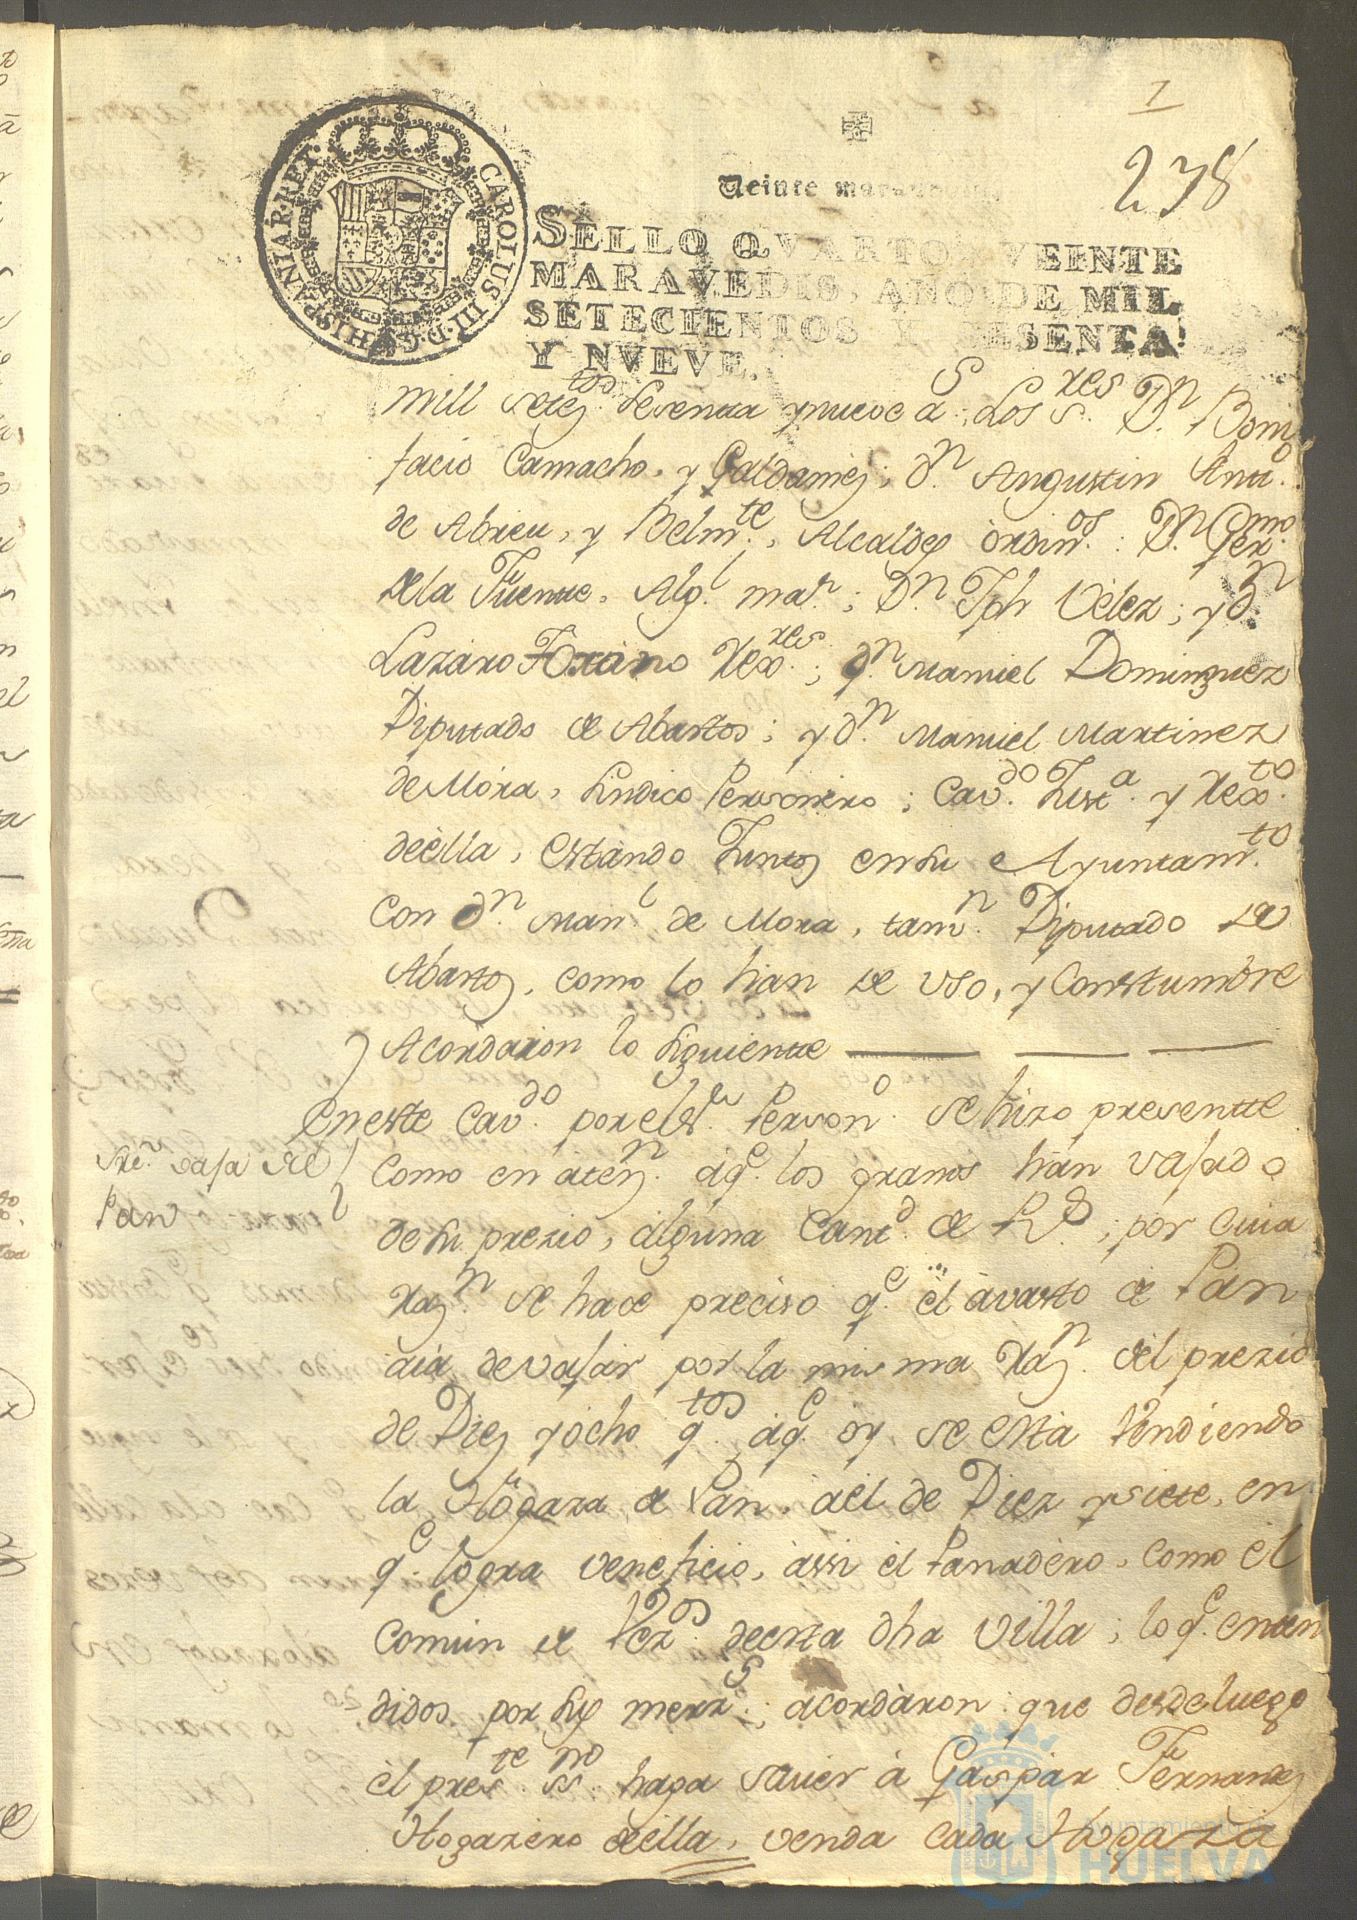 1
238
Veinte maravedis
CAROLUS III. D. G. HISPANIAR. REX.
SELLO QVARTO, VEINTE
MARAVEDIS, AÑO DE MIL
SETECIENTOS Y SESENTA
Y NVEVE.
mill setez.tos sesentta y nueve a.s; Los s.res D.n Boni
facio Camacho, y Galdamez; d.n Angustin Antt.o
de Abreu, y Belm.te, Alcaldes òrdin.os: D.n Germo.
de la Fuentte, Alg.l ma.r; D.n Jph Velez; y d.n
Lazaro Forano Rex.res; d.n Manuel Dominguez
Diputado de Abastos; y d.n Manuel Martinez
de Mora, Sindico Personero; Cav.do Just.a y Rex.to
deèlla, estando Juntos en su Ayuntam.to
con d.n Man.l de Mora, tam.n Diputado de
Abastos, como lo han de uso, y Constumbre
Acordaron lo siguientte
En este Cav.do por el s.r Person.o se hizo presentte
Sre. vaja de
Pan
como en aten.n àq.e los granos hàn vajado
de su prezio, alguna Cant.d de R.s; por cuia
Raz.n se hace preciso q.e èl avasto de Pan
aià de vajar por la misma Raz.n del prezio
de Diez y òcho q.tos àq.e oy se està bendiendo
la Hogaza de Pan àèl de Diez y siete, en
q.e logra veneficio, àssi èl Panadèro, como èl
comun de Vez.os de esta dha Villa; lo q.e enten
didos por sus merz.s; acordàron que desde luego
èl pres.te ss.no haga saver à Gaspàr Fernandez
Hogazèro de ella, venda cada Hogaza
Ayuntamiento de
HUELVA